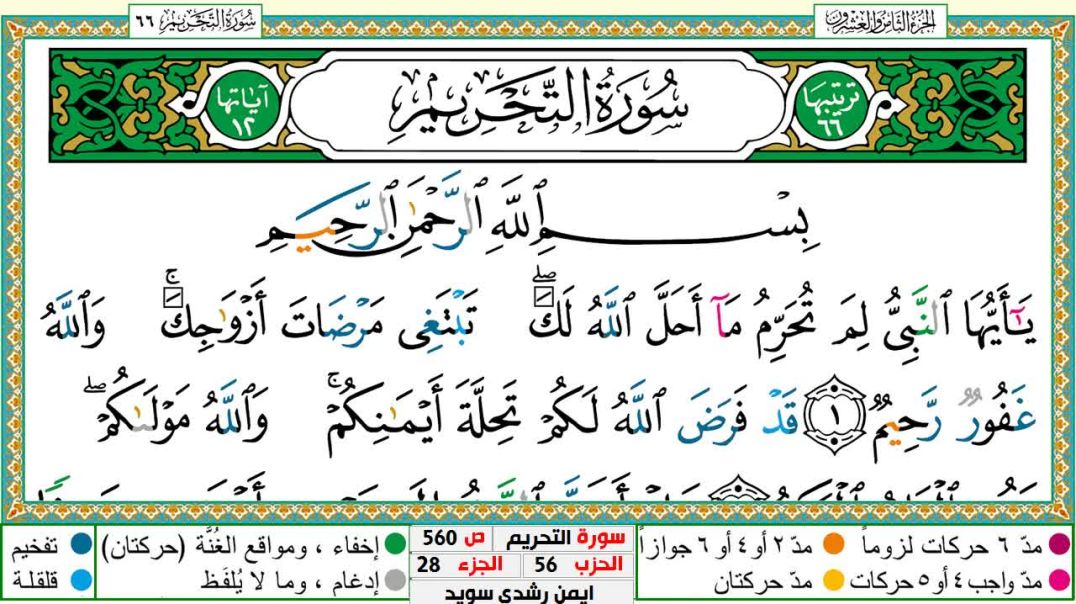 الجزء الثامن والعشرون
سورة التحريم ٦٦
ترتيبها ٦٦
سُورَةُ التَّحْرِيمِ
آياتها ١٢
بِسْمِ ٱللَّهِ ٱلرَّحْمَٰنِ ٱلرَّحِيمِ
يَٰٓأَيُّهَا ٱلنَّبِىُّ لِمَ تُحَرِّمُ مَآ أَحَلَّ ٱللَّهُ لَكَۖ تَبْتَغِى مَرْضَاتَ أَزْوَٰجِكَۚ وَٱللَّهُ
غَفُورٌ رَّحِيمٌ ١ قَدْ فَرَضَ ٱللَّهُ لَكُمْ تَحِلَّةَ أَيْمَٰنِكُمْۚ وَٱللَّهُ مَوْلَىٰكُمْۖ
مدّ ٦ حركات لزوماً
مدّ ٢ أو ٤ أو ٦ جوازاً
مدّ واجب ٤ أو ٥ حركات
مدّ حركتان
سورة التحريم ص 560
الحزب 56 الجزء 28
ايمن رشدي سويد
إخفاء ، ومواقع الغُنَّة (حركتان)
تفخيم
إدغام ، وما لا يُلفَظ
قلقلة